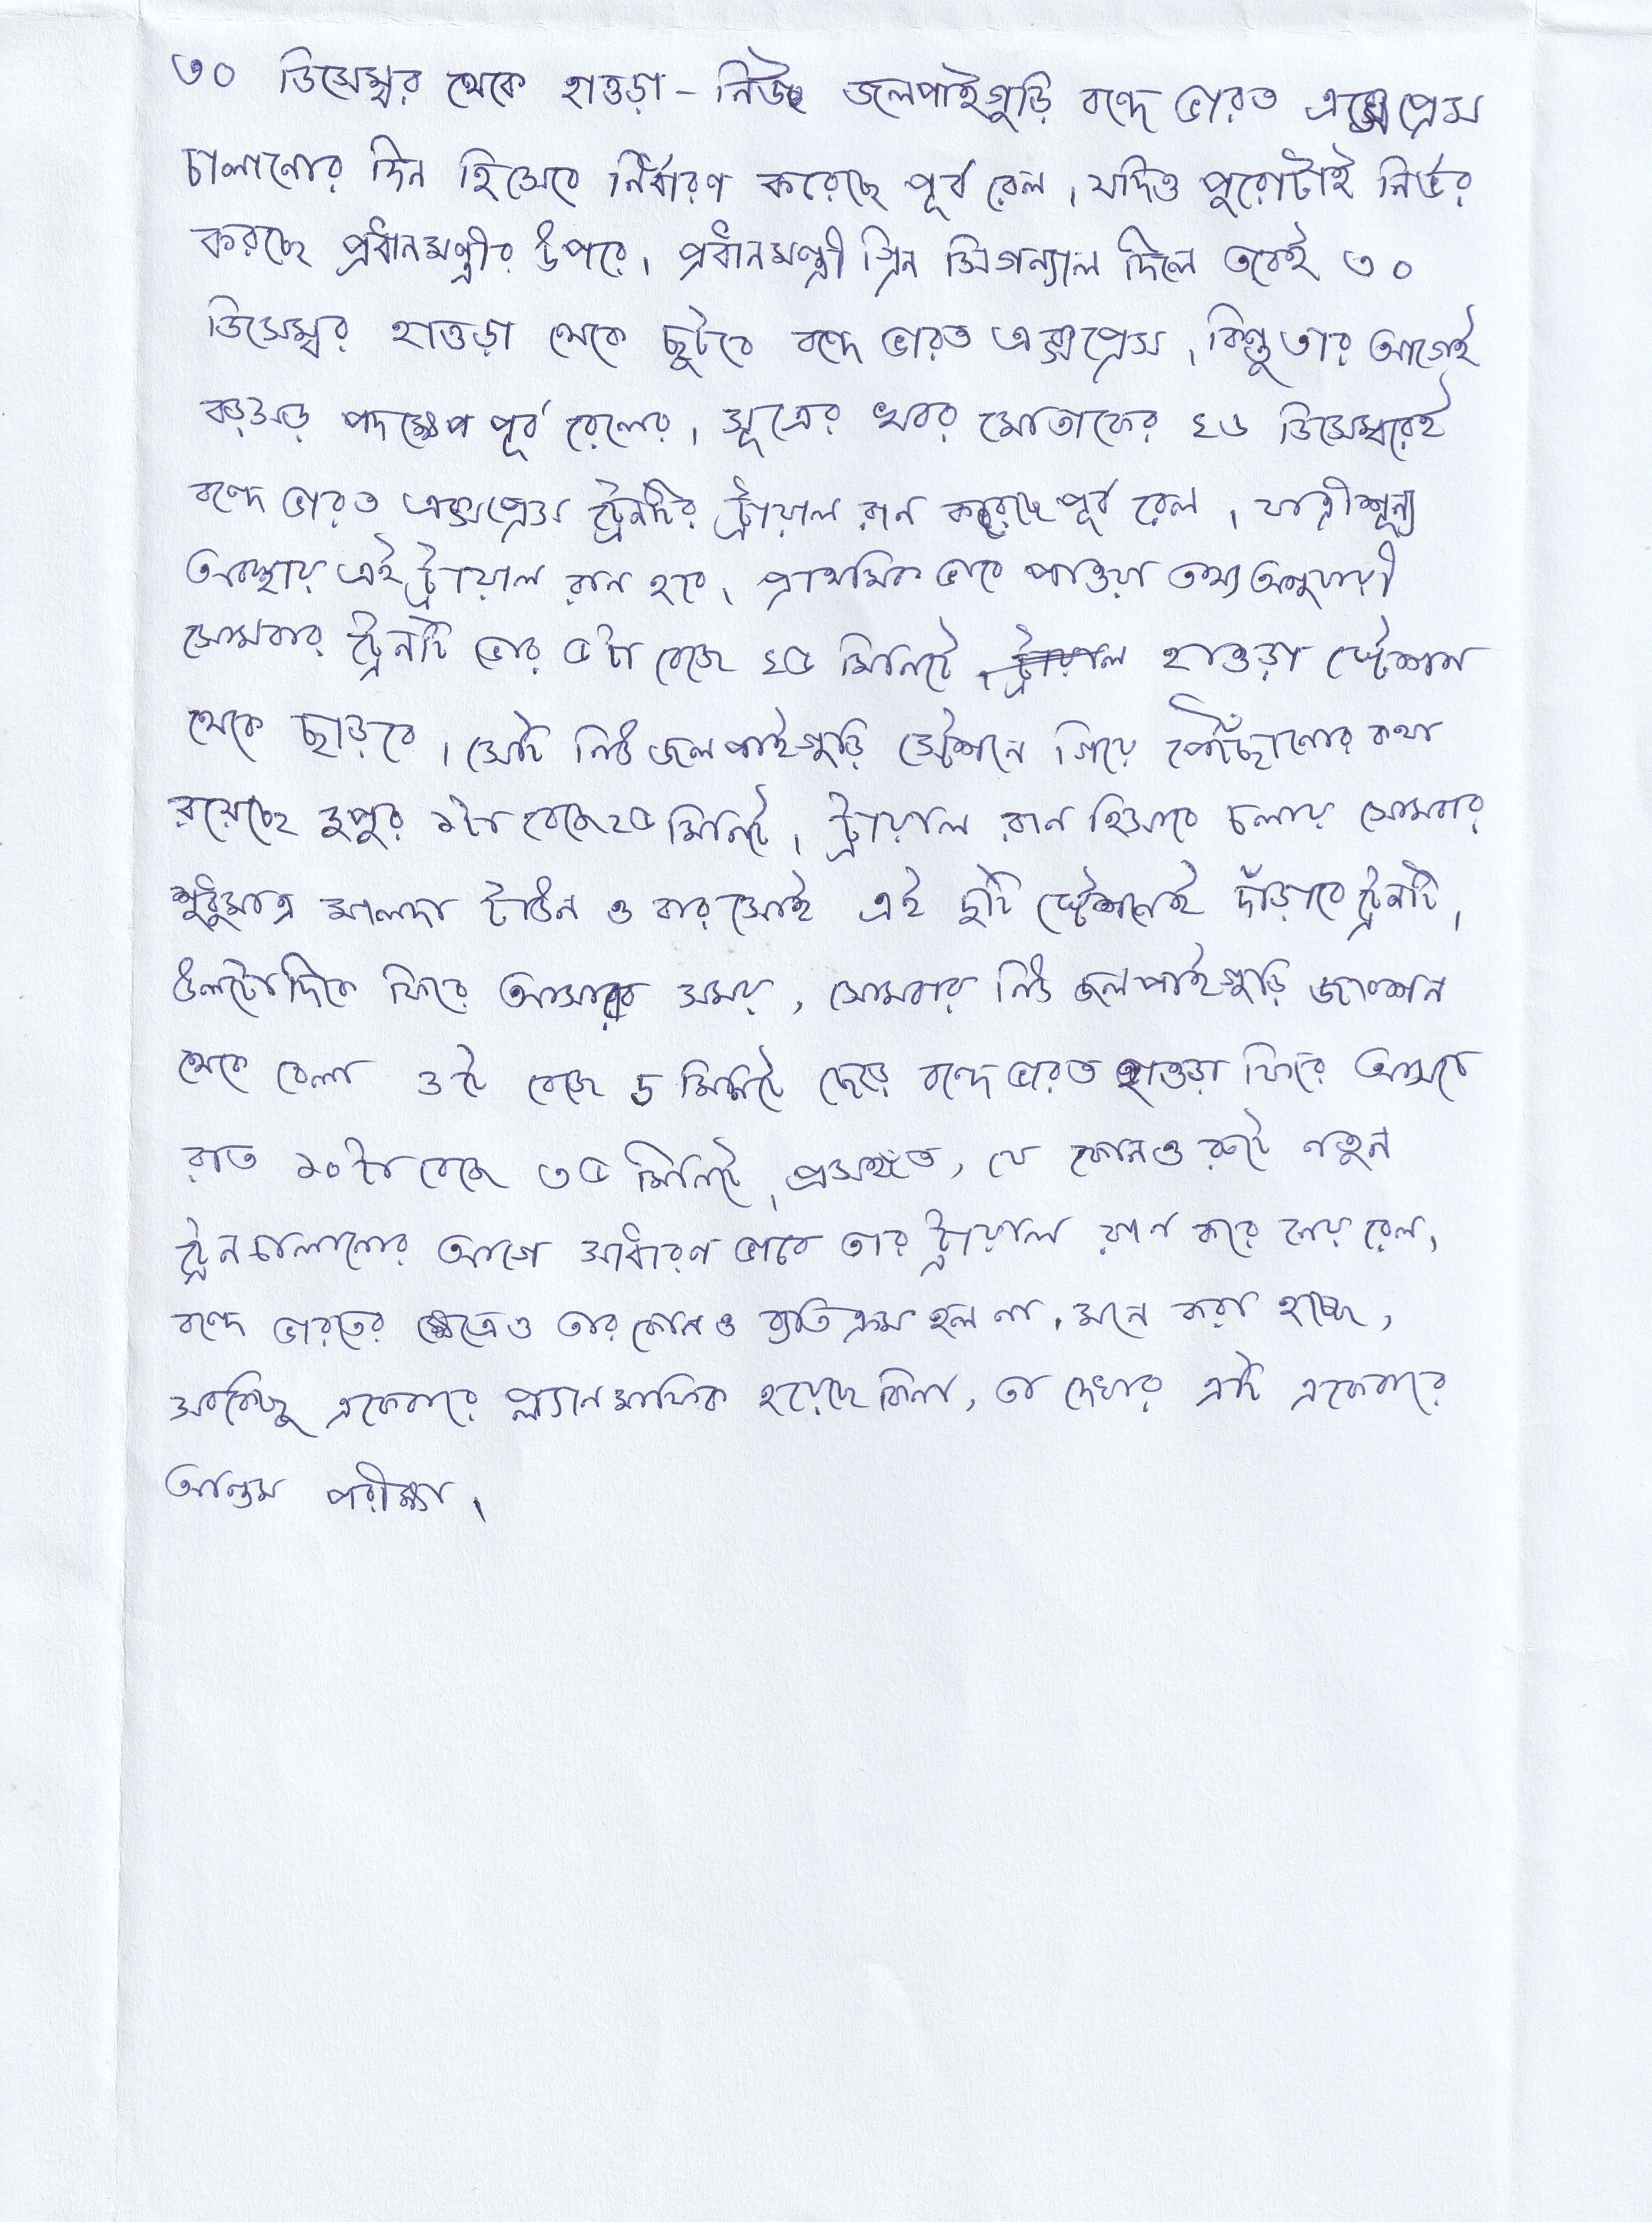 ৩০ ডিসেম্বর থেকে হাওড়া - নিউ জলপাইগুড়ি বন্দে ভারত এক্সপ্রেস
চালানোর দিন হিসেবে নির্ধারণ করেছে পূর্ব রেল। যদিও পুরোটাই নির্ভর
করছে প্রধানমন্ত্রীর উপরে। প্রধানমন্ত্রী গ্রিন সিগন্যাল দিলে তবেই ৩০
ডিসেম্বর হাওড়া থেকে ছুটবে বন্দে ভারত এক্সপ্রেস। কিন্তু তার আগেই
বড়সড় পদক্ষেপ পূর্ব রেলের। সূত্রের খবর মোতাবেক ২৬ ডিসেম্বরেই
বন্দে ভারত এক্সপ্রেস ট্রেনটির ট্রায়াল রান করছে পূর্ব রেল। যাত্রীশূন্য
অবস্থায় এই ট্রায়াল রান হবে। প্রাথমিক ভাবে পাওয়া তথ্য অনুযায়ী
সোমবার ট্রেনটি ভোর ৫টা বেজে ২৫ মিনিটে হাওড়া স্টেশন
থেকে ছাড়বে। সেটি নিউ জলপাইগুড়ি স্টেশনে গিয়ে পৌঁছানোর কথা
রয়েছে দুপুর ১টা বেজে ২৫ মিনিটে। ট্রায়াল রান হিসাবে চলায় সোমবার
শুধুমাত্র মালদা টাউন ও বারসোই এই দুটি স্টেশনেই দাঁড়াবে ট্রেনটি।
উলটোদিকে ফিরে আসার সময়, সোমবার নিউ জলপাইগুড়ি জংশন
থেকে বেলা ৩টে বেজে ৫ মিনিটে ছেড়ে বন্দে ভারত হাওড়া ফিরে আসবে
রাত ১০টা বেজে ৩৫ মিনিটে। প্রসঙ্গত, যে কোনও রুটে নতুন
ট্রেন চালানোর আগে সাধারণ ভাবে তার ট্রায়াল রান করে নেয় রেল।
বন্দে ভারতের ক্ষেত্রেও তার কোনও ব্যতিক্রম হল না। মনে করা হচ্ছে,
সবকিছু একেবারে প্ল্যান মাফিক হয়েছে কিনা, তা দেখার এটি একেবারে
অন্তিম পরীক্ষা।